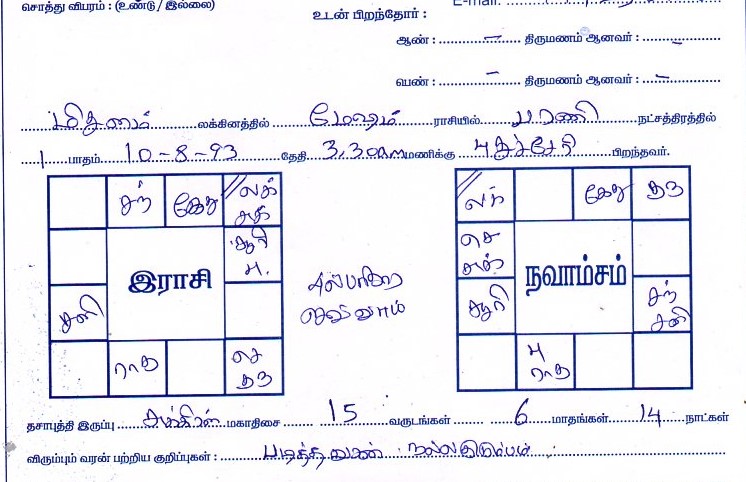 சொத்து விபரம் : (உண்டு / இல்லை)
E-mail:
உடன் பிறந்தோர் :
ஆண் : – திருமணம் ஆனவர் : –
பெண் : – திருமணம் ஆனவர் : –
மிதுனம் லக்கினத்தில் மேஷம் ராசியில் பரணி நட்சத்திரத்தில்
1 பாதம் 10-8-93 தேதி 3.30am மணிக்கு புதுச்சேரி பிறந்தவர்.
சந் கேது லக் சுக்
சூரி பு.
இராசி
சனி
ராகு செ குரு
லக் கேது குரு
செ சுக்
நவாம்சம்
சூரி சந் சனி
பு ராகு
தசாபுத்தி இருப்பு சுக்கிரன் மகாதிசை 15 வருடங்கள் 6 மாதங்கள் 14 நாட்கள்
விரும்பும் வரன் பற்றிய குறிப்புகள் : படித்தவுடன் நல்லகுடும்பம்